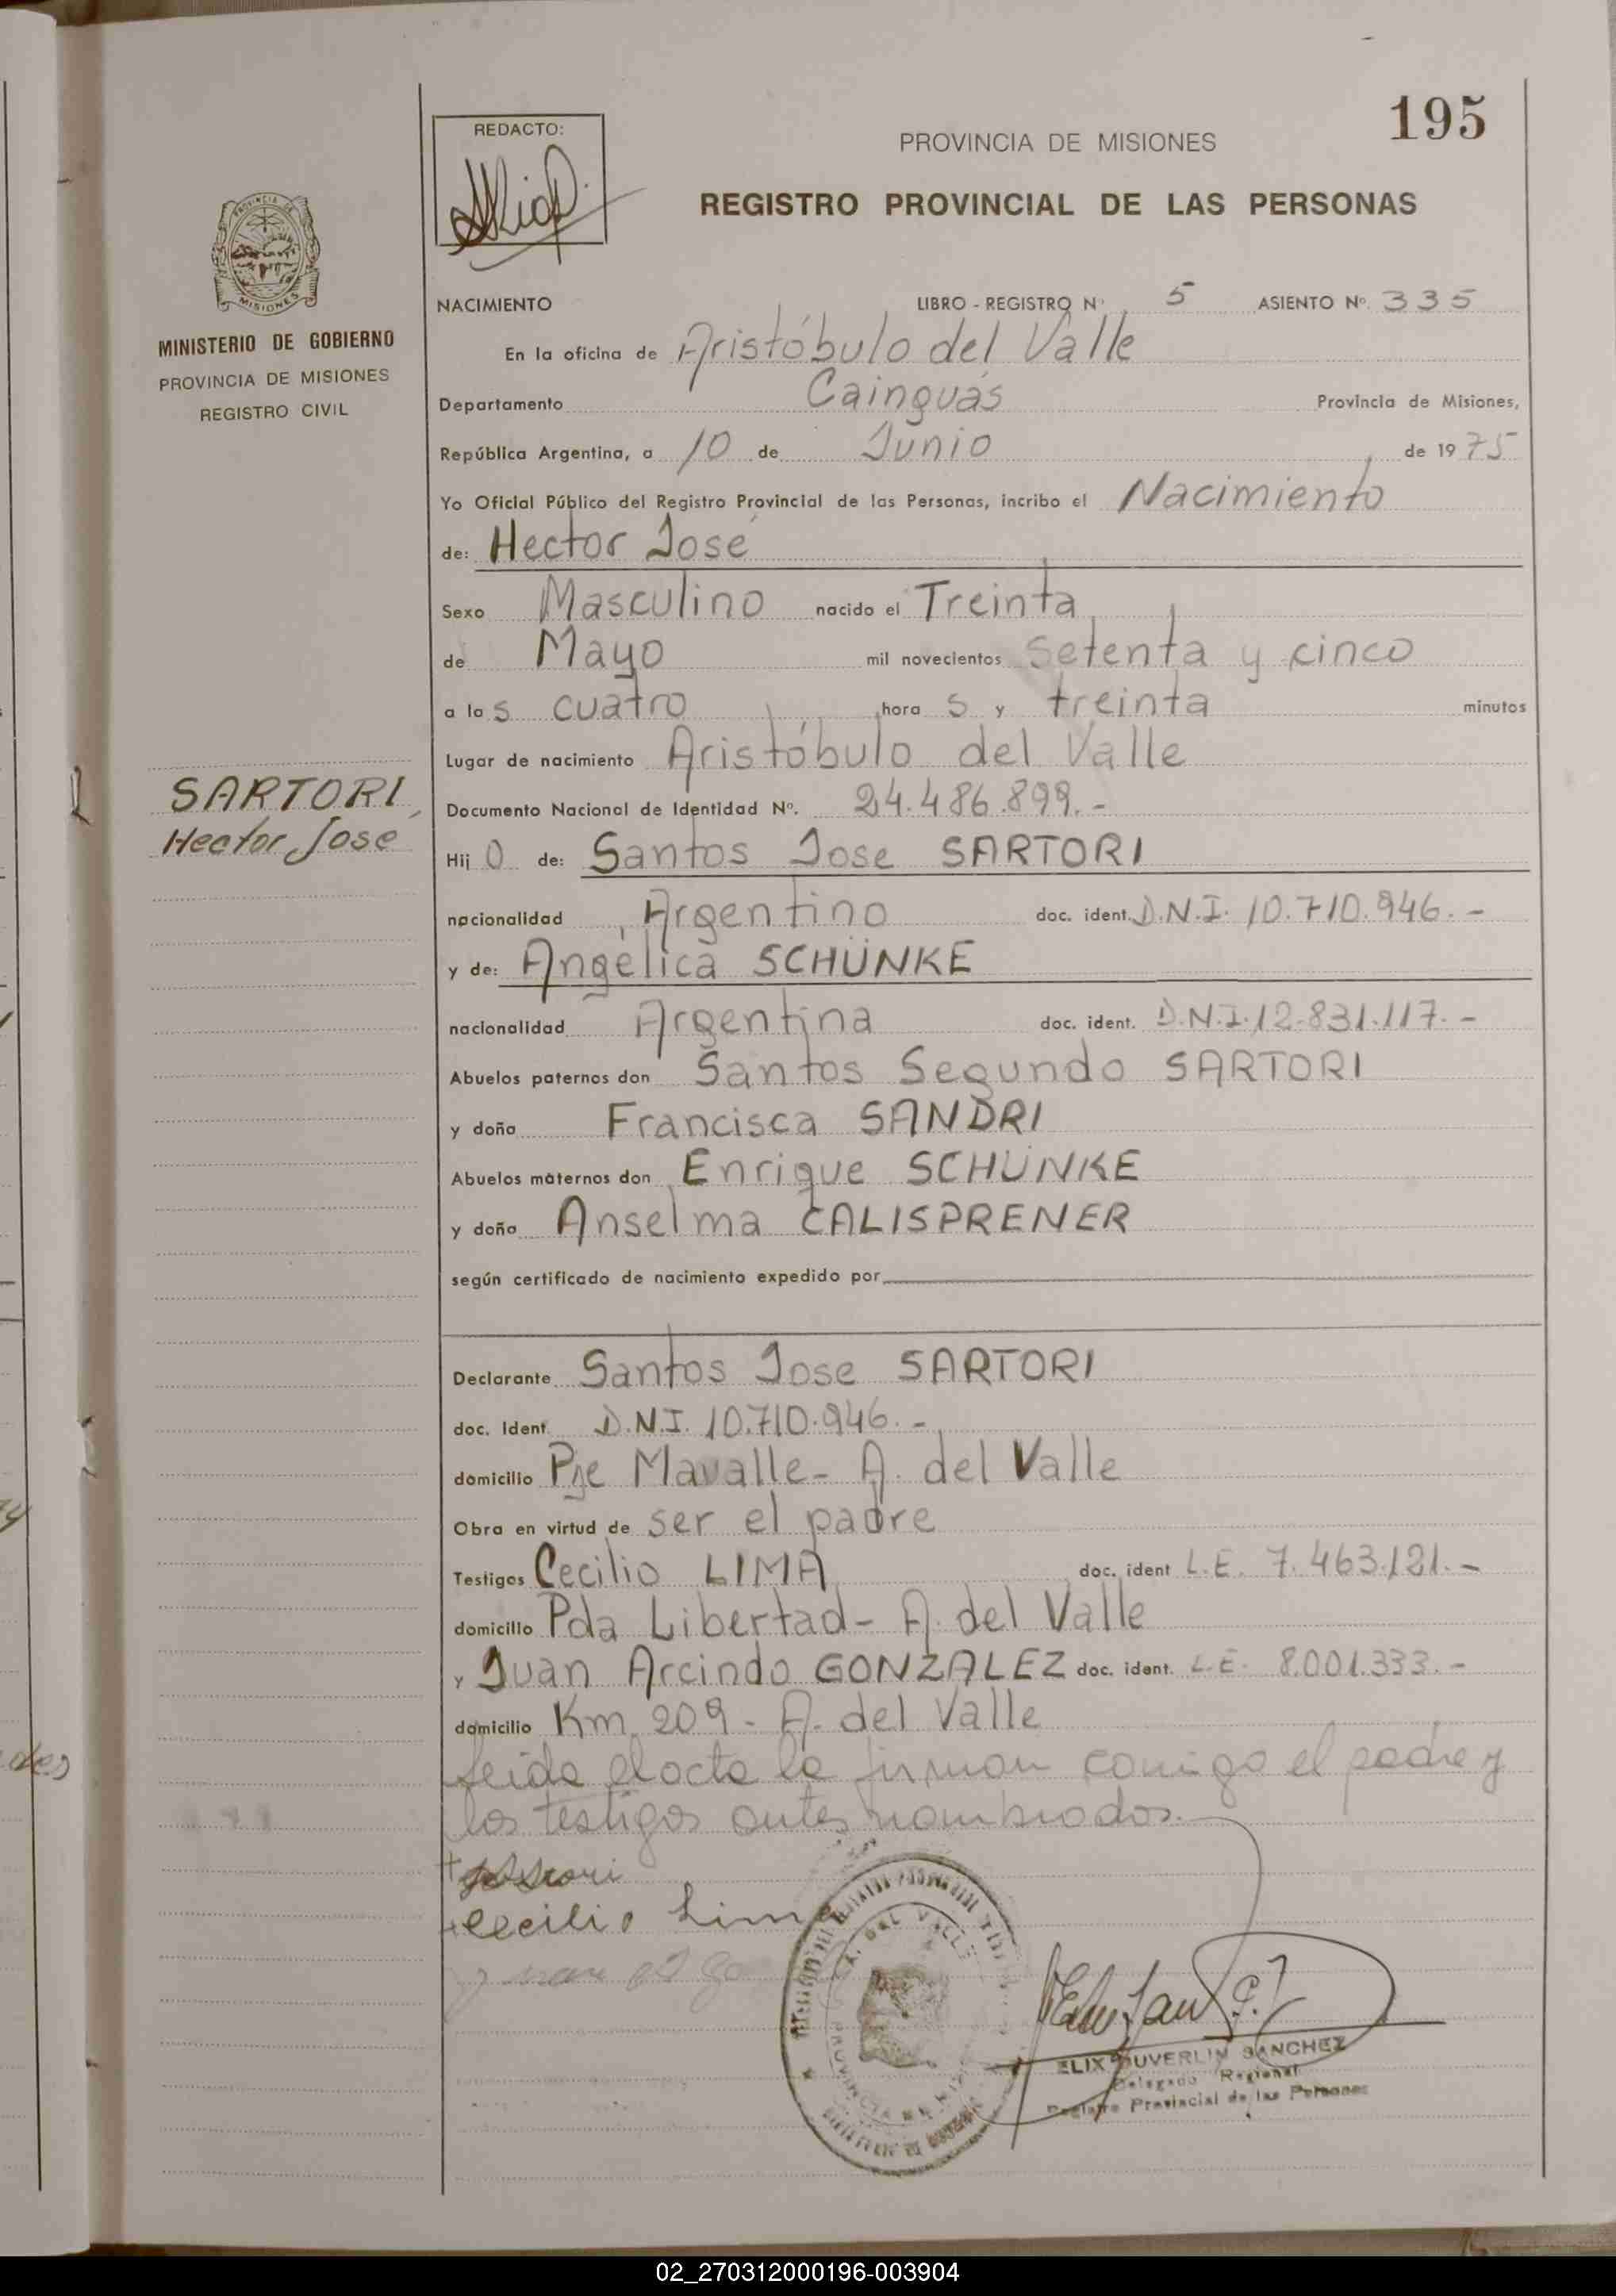 195
REDACTO:
PROVINCIA DE MISIONES
REGISTRO PROVINCIAL DE LAS PERSONAS
MISIONES
MINISTERIO DE GOBIERNO
PROVINCIA DE MISIONES
REGISTRO CIVIL
NACIMIENTO LIBRO - REGISTRO Nº 5 ASIENTO Nº. 335
En la oficina de Aristóbulo del Valle
Departamento Cainguás Provincia de Misiones,
República Argentina, a 10 de Junio de 1975
Yo Oficial Público del Registro Provincial de las Personas, incribo el Nacimiento
de: Hector José
Sexo Masculino nacido el Treinta
de Mayo mil novecientos setenta y cinco
a las cuatro horas y treinta minutos
Lugar de nacimiento Aristóbulo del Valle
SARTORI,
Hector José
Documento Nacional de Identidad Nº. 24.486.899.-
Hijo de: Santos Jose SARTORI
nacionalidad Argentino doc. ident. D.N.I. 10.710.946.-
y de: Angélica SCHÜNKE
nacionalidad Argentina doc. ident. D.N.I. 12.831.117.-
Abuelos paternos don Santos Segundo SARTORI
y doña Francisca SANDRI
Abuelos maternos don Enrique SCHÜNKE
y doña Anselma CALISPRENER
según certificado de nacimiento expedido por
Declarante Santos Jose SARTORI
doc. Ident. D.N.I. 10.710.946.-
domicilio Pje Mavalle- A. del Valle
Obra en virtud de ser el padre
Testigos Cecilio LIMA doc. ident L.E. 7.463.121.-
domicilio Pda Libertad- A. del Valle
y Juan Arcindo GONZALEZ doc. ident. L.E. 8.001.333.-
domicilio Km 209- A. del Valle
leida el acta la firman conmigo el padre y
los testigos antes nombrados.-
Cecilio Lima
A. DEL VALLE
PROVINCIA DE MISIONES
ELIX DUVERLIN SANCHEZ
Delegado Regional
Registro Provincial de las Personas
02_270312000196-003904